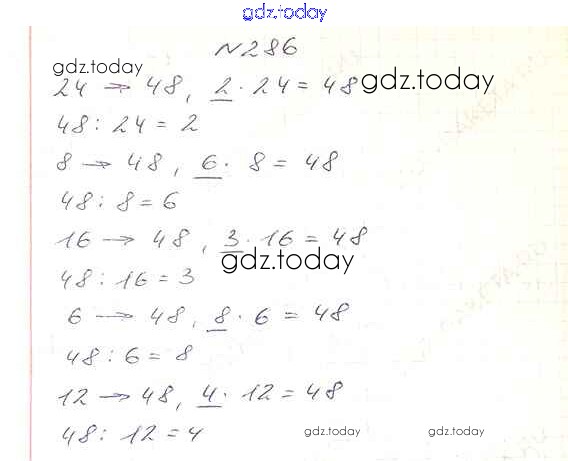 gdz.today
№286
gdz.today
24 → 48, 2 · 24 = 48
gdz.today
48 : 24 = 2
8 → 48, 6 · 8 = 48
48 : 8 = 6
16 → 48, 3 · 16 = 48
gdz.today
48 : 16 = 3
6 → 48, 8 · 6 = 48
48 : 6 = 8
12 → 48, 4 · 12 = 48
48 : 12 = 4
gdz.today
gdz.today